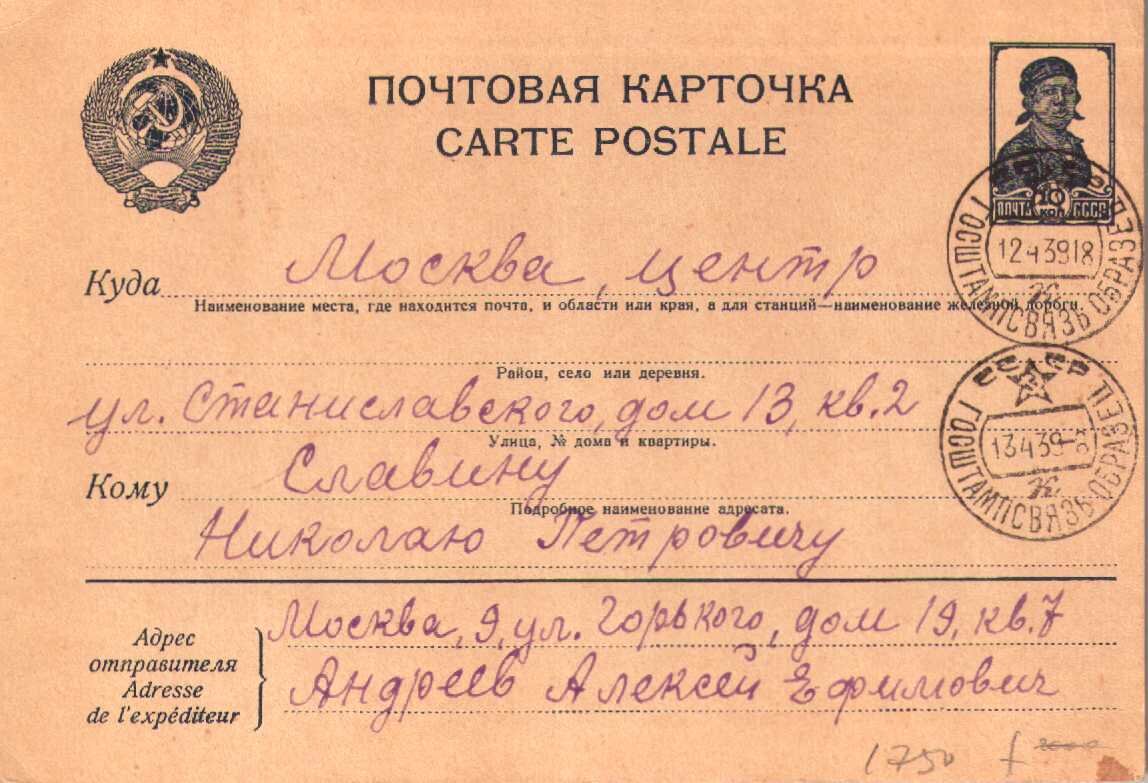 ПОЧТОВАЯ КАРТОЧКА
CARTE POSTALE
ПОЧТА 10 КОП. СССР
ГОССТАМПСВЯЗЬ ОБРАЗЕЦ
12 4 39 18
Куда Москва, центр
Наименование места, где находится почта, и области или края, а для станций—наименование железной дороги.
Район, село или деревня.
ул. Станиславского, дом 13, кв. 2
Улица, № дома и квартиры.
СССР
ГОСШТАМПСВЯЗЬ ОБРАЗЕЦ
13 4 39
Кому Славину
Подробное наименование адресата.
Николаю Петровичу
Адрес отправителя
Adresse de l'expéditeur
Москва, 9, ул. Горького, дом 19, кв. 7
Андреев Алексей Ефимович
1750